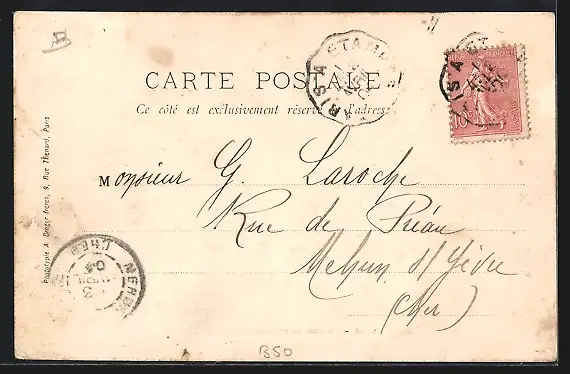 CARTE POSTALE
Ce côté est exclusivement réservé à l'adresse
Monsieur G. Laroche
Rue de Préau
Mehun s/ Yèvre
(Cher)
Phototypie A. Breger frères, 9, Rue Thénard, Paris
PARIS A ETAMP
04
CHER
B50